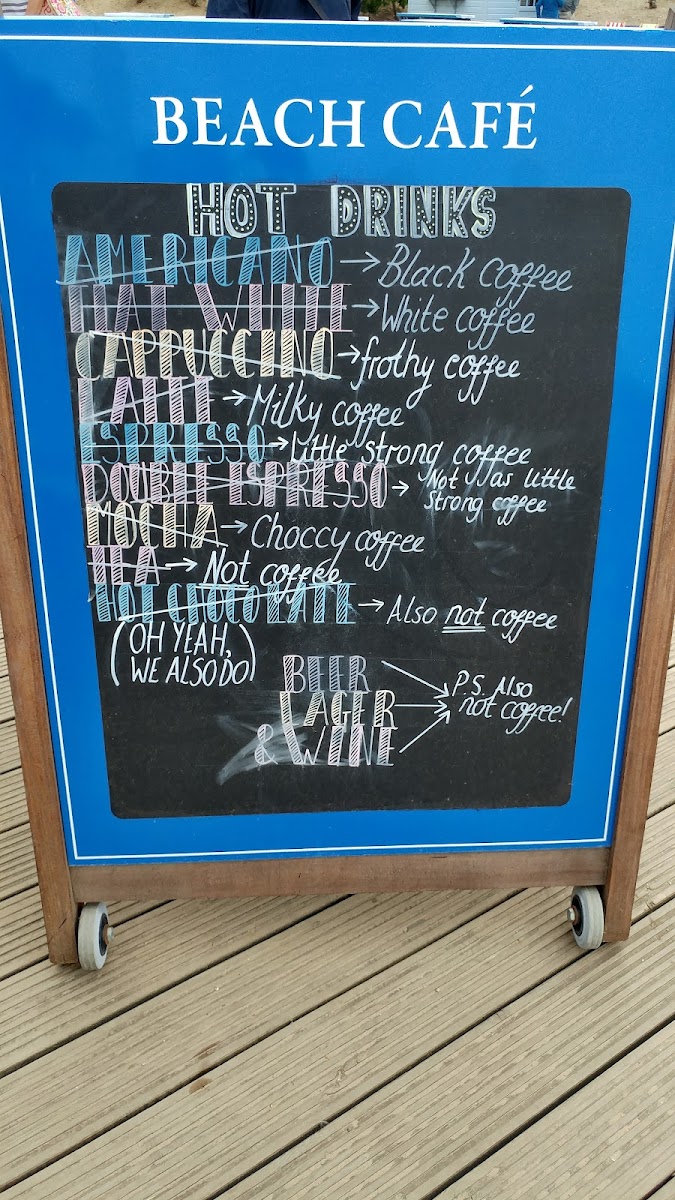 BEACH CAFÉ
HOT DRINKS
AMERICANO → Black coffee
FLAT WHITE → White coffee
CAPPUCCINO → frothy coffee
LATTE → Milky coffee
ESPRESSO → Little strong coffee
DOUBLE ESPRESSO → Not as little
strong coffee
MOCHA → Choccy coffee
TEA → Not coffee
HOT CHOCOLATE → Also not coffee
(OH YEAH,
WE ALSO DO)
BEER
LAGER
& WINE
P.S. Also
not coffee!